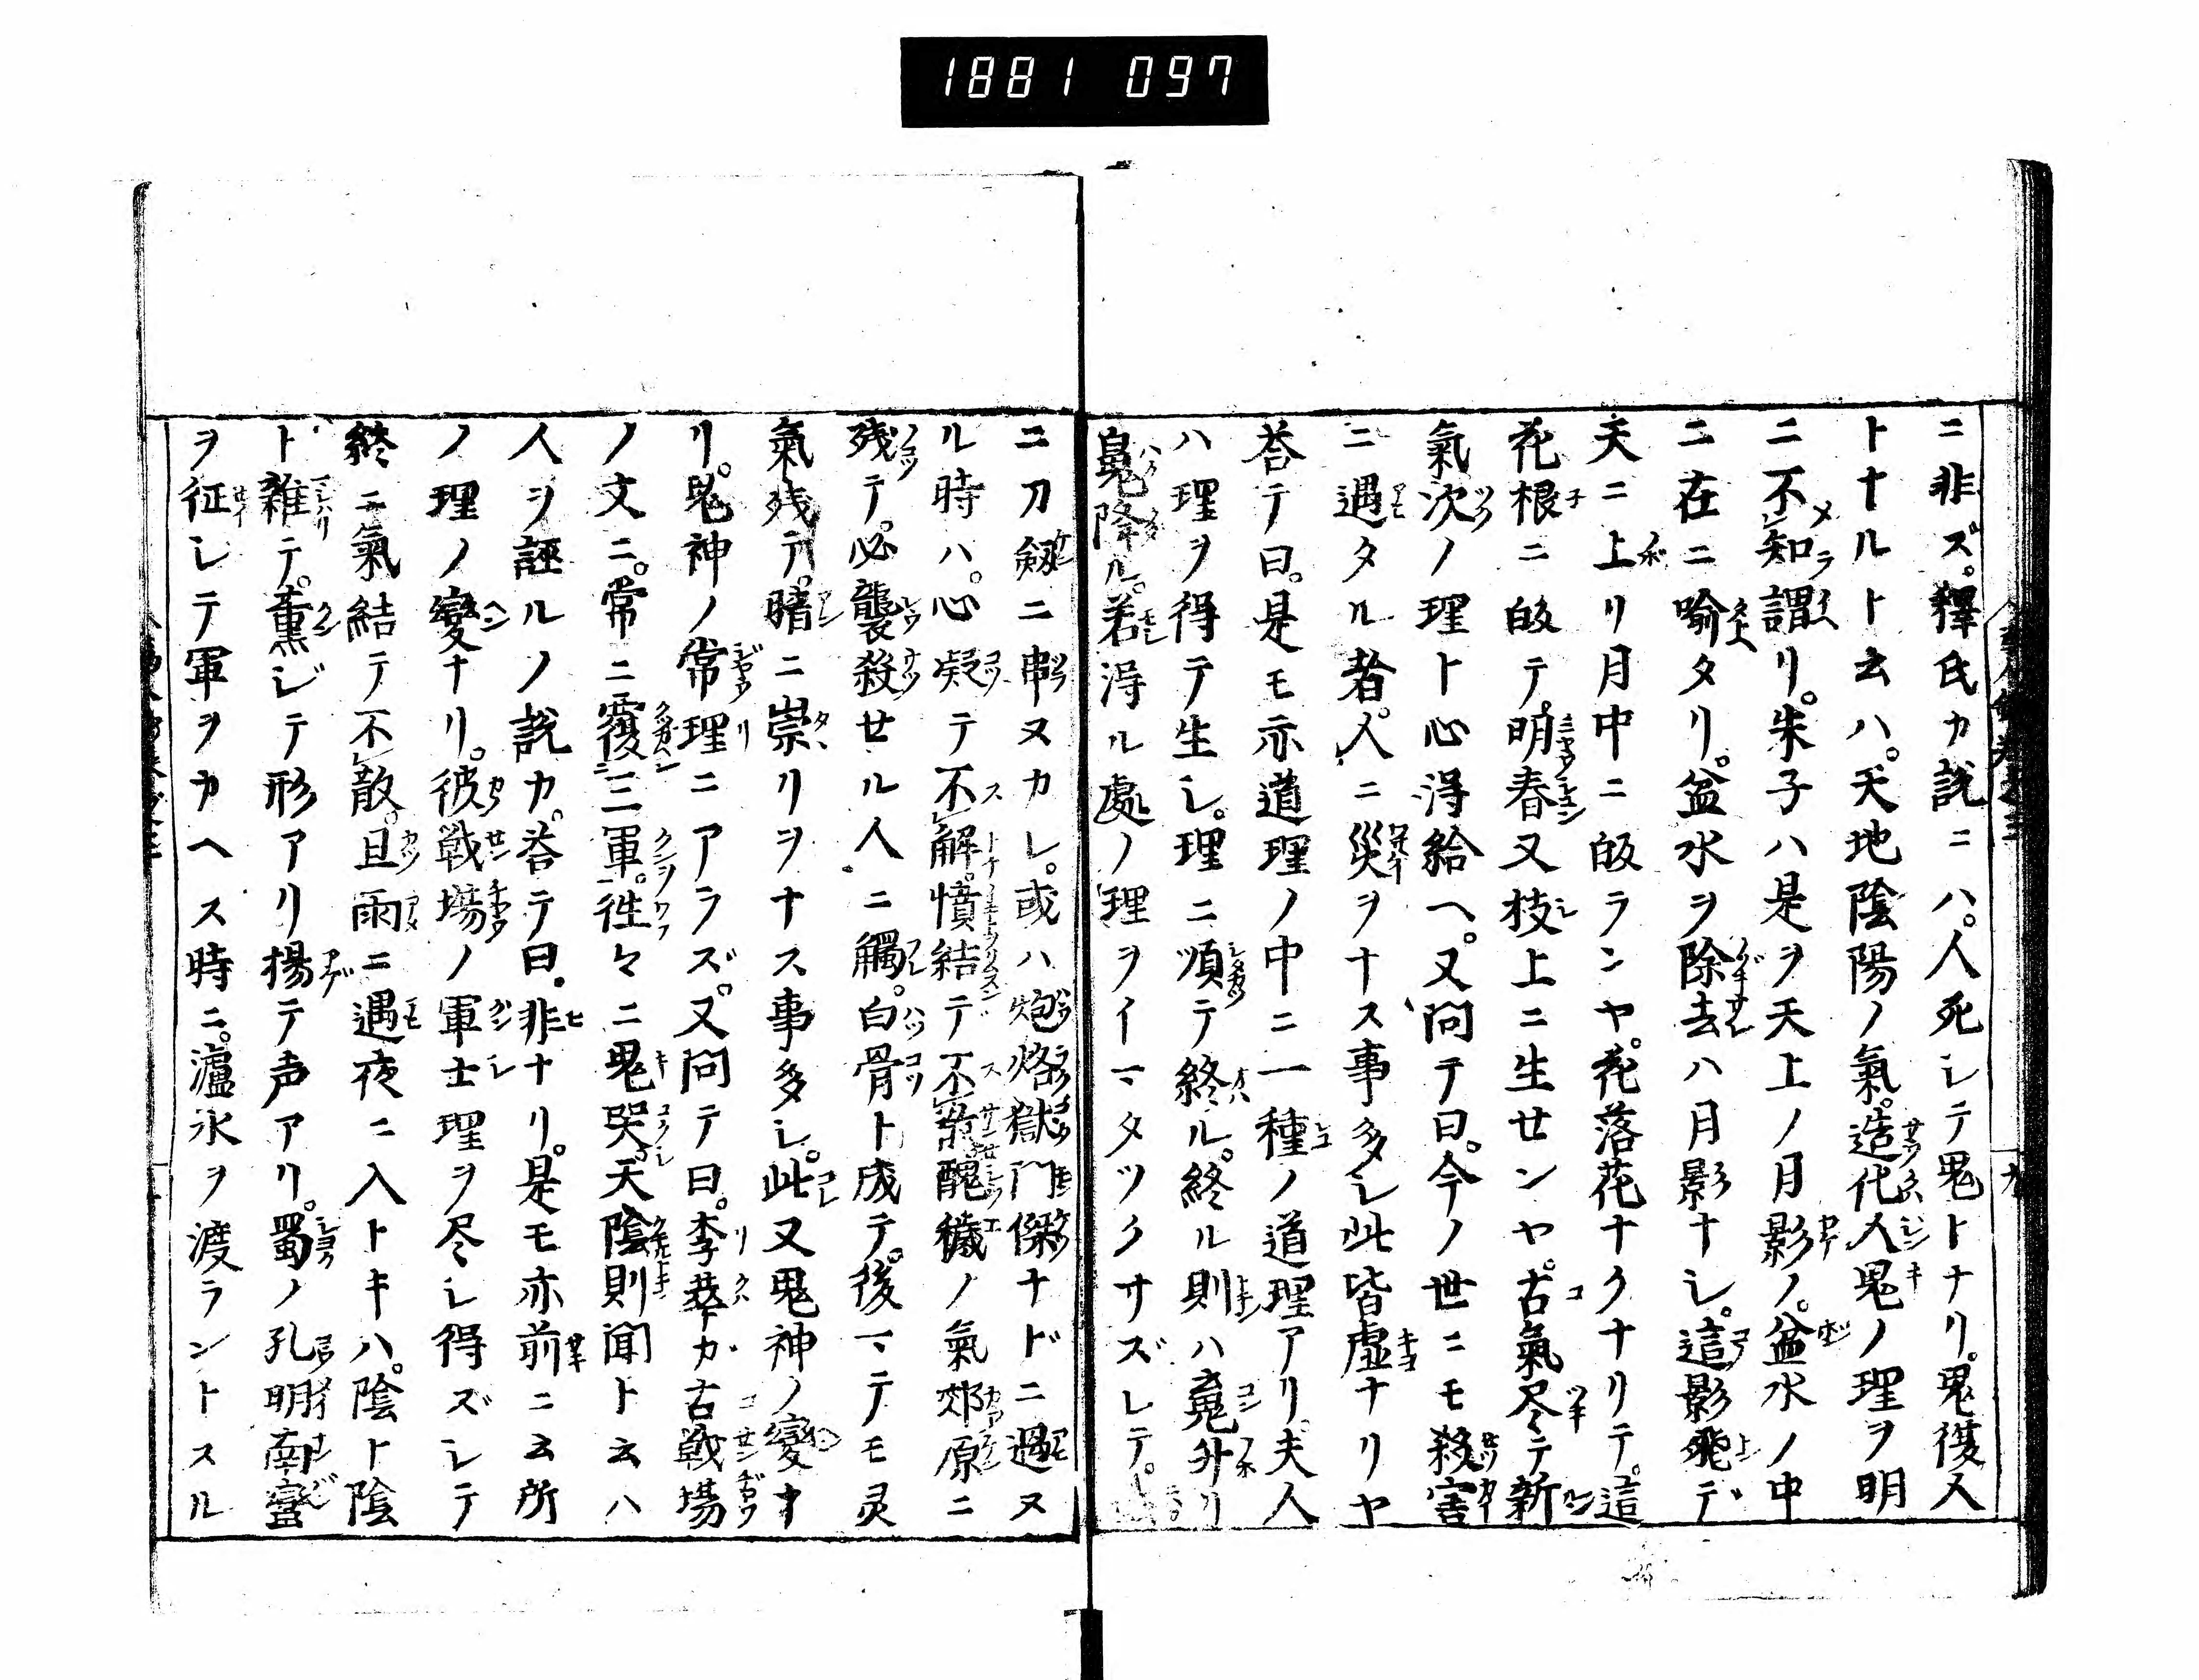 1881 097
ニ非ズ。釋氏カ説ニハ。人死シテ鬼トナリ。鬼復人
トナルト云ハ。天地陰陽ノ氣。造化人鬼ノ理ヲ明
ニ不知謂リ。朱子ハ是ヲ天上ノ月影ノ。盆水ノ中
ニ在ニ喻タリ。盆水ヲ除去ハ月影ナシ。這影飛デ
天ニ上リ月中ニ皈ランヤ。花落花ナクナリテ。這
花根ニ皈テ。明春又枝上ニ生センヤ。古氣尽テ新
氣次ノ理ト心得給ヘ。又問テ曰。今ノ世ニモ殺害
ニ遇タル者。人ニ災ヲナス事多シ此皆虚ナリヤ
荅テ曰。是モ亦道理ノ中ニ一種ノ道理アリ。夫人
ハ理ヲ得テ生シ。理ニ順テ終ル。終ル則ハ䰟升リ
鬼降ル。若得ル處ノ理ヲイマタツクサズレテ。
ニ刀劔ニ串ヌカレ。或ハ炮烙獄門傑ナドニ遇ヌ
ル時ハ。心凝テ不解。憤結テ不散醜穢ノ氣郊原ニ
残テ。必襲殺セル人ニ觸。白骨ト成テ。後マテモ灵
氣残テ。暗ニ祟リヲナス事多シ。此又鬼神ノ變ナ
リ。鬼神ノ常理ニアラズ。又問テ曰。李華カ古戦場
ノ文ニ。常ニ覆三軍。徃々ニ鬼哭天陰則聞ト云ハ
人ヲ誣ルノ説カ。荅テ曰。非ナリ。是モ亦前ニ云所
ノ理ノ變ナリ。彼戦場ノ軍士理ヲ尽シ得ズレテ
終ニ氣結テ不散。且雨ニ遇夜ニ入トキハ。陰ト陰
ト雑テ。薫ジテ形アリ揚テ声アリ。蜀ノ孔明南蛮
ヲ征シテ軍ヲカヘス時ニ。瀘水ヲ渡ラントスル